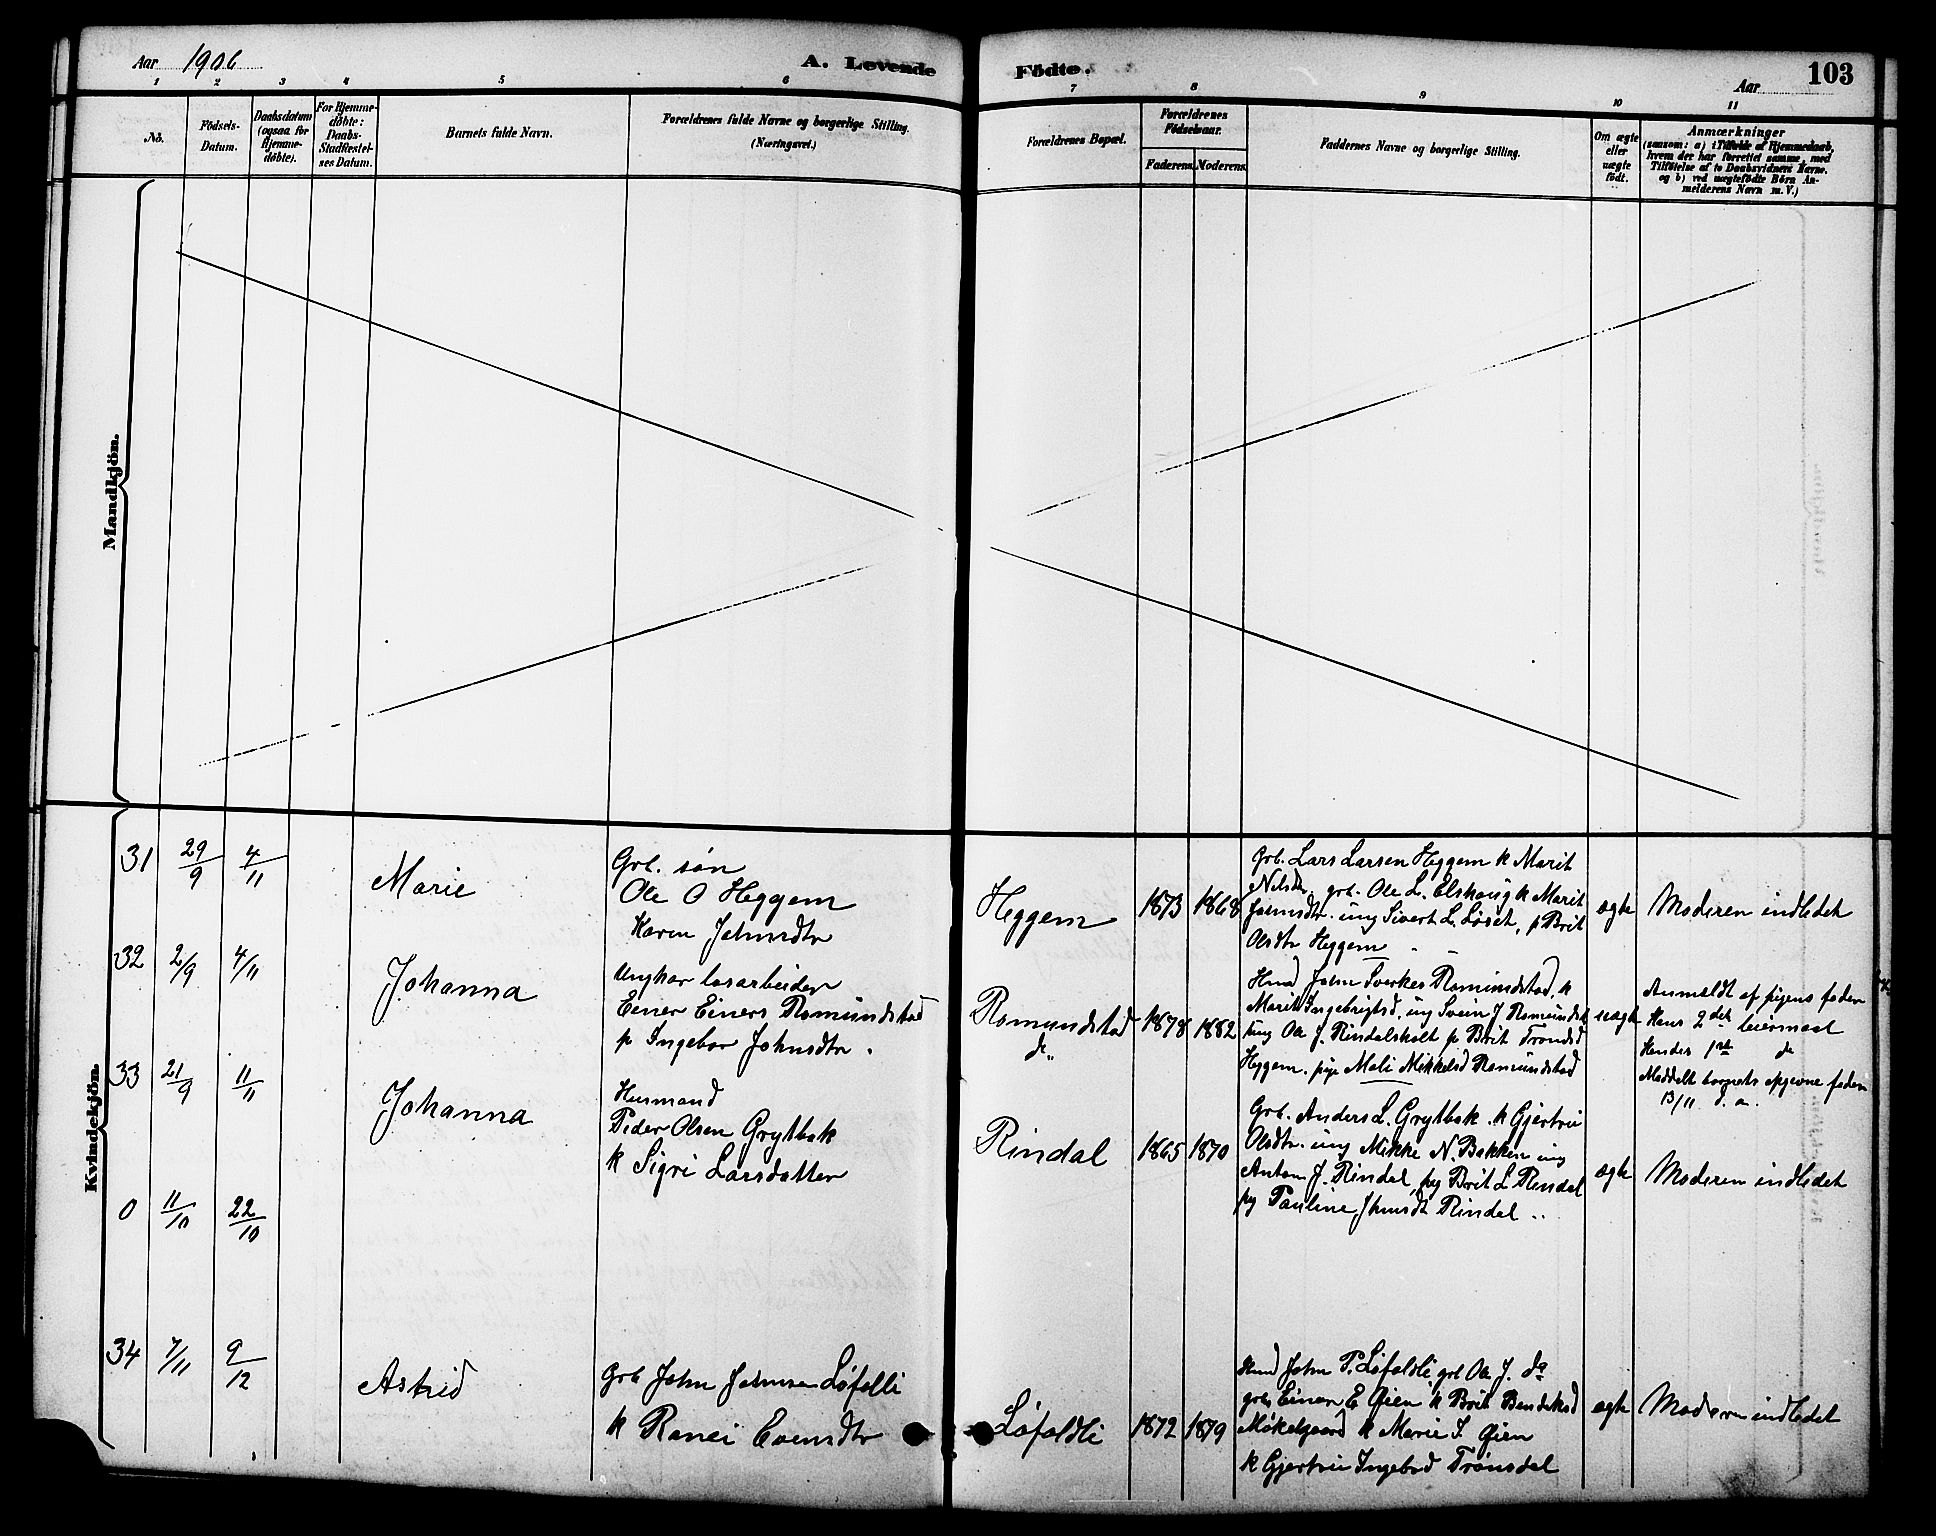 Aar 1906
A. Levende Födte.
Aar
103
1 2 3 4 5 6 7 8 9 10 11
No.
Födsels-
Datum.
Daabsdatum
(ogsaa for
Hjemme-
døbte).
For Hjemme-
døbte:
Daabs-
Stadfæstel-
ses Datum.
Barnets fulde Navn.
Forældrenes fulde Navne og borgerlige Stilling.
(Næringsvei.)
Forældrenes Bopæl.
Forældrenes
Födselsaar.
Faderens Moderens
Faddernes Navne og borgerlige Stilling.
Om ægte
eller
uægte
födt.
Anmærkninger
(saasom: a) i Tilfælde af Hjemmedaab,
hvem der har forrettet samme, med
Tilföielse af to Daabsvidners Navne.
og b) ved uægtefødte Börn An-
melderens Navn m. V.)
Mandkjön.
Kvindekjön.
31 29/9 4/11
Marie
Grb. søn
Ole O Heggem
Karen Johnsdtr
Heggem
1873 1868
Grb. Lars Larsen Heggem k Marit
Nelsdr. grb. Ole L. Elshaug k Marit
Johnsdtr. ung Sivert L. Løset, p Brit
Olsdtr Heggem
ægte
Moderen indledet
32 2/9 4/11
Johanna
Ungkar løsarbeider
Einer Einers Romundstad
p Ingebor Johnsdtr.
Romundstad
do
1878 1882
Husmd John Sverkes Romundstad, k
Marit Ingebrigtsd, ung Svein J Romundst
ung Ole J. Rindalsholt p Brit Trondsd
Heggem. pige Mali Mikkelsd Romundstad
uægte
Anmeldt af pigens fader
Hans 2det leiermaal
Hendes 1ste do
Meddelt barnets opgivne fader
13/11 d. a.
33 21/9 11/11
Johanna
Husmand
Peder Olsen Grytbak
k Sigri Larsdatter
Rindal
1865 1870
Grb. Anders L. Grytbak. k Gjertru
Olsdtr. ung Mikke N. Bakken ung
Anton J. Rindal, pg Brit L Rindal
pg Pauline Jhnsdt Rindal
ægte
Moderen indledet
0 11/10 22/10
34 7/11 9/12
Astrid
Grb John Johnsen Løfolli
k Ranei Evensdtr
Løfaldli
1872 1879
Husmd John P. Løfaldli, grb Ole J. do
grb, Einar E Øien k Brit Bendiksd
Møkelgaard k Marie I Øien
k Gjertru Ingebrd Trønsdal
ægte
Moderen indledet